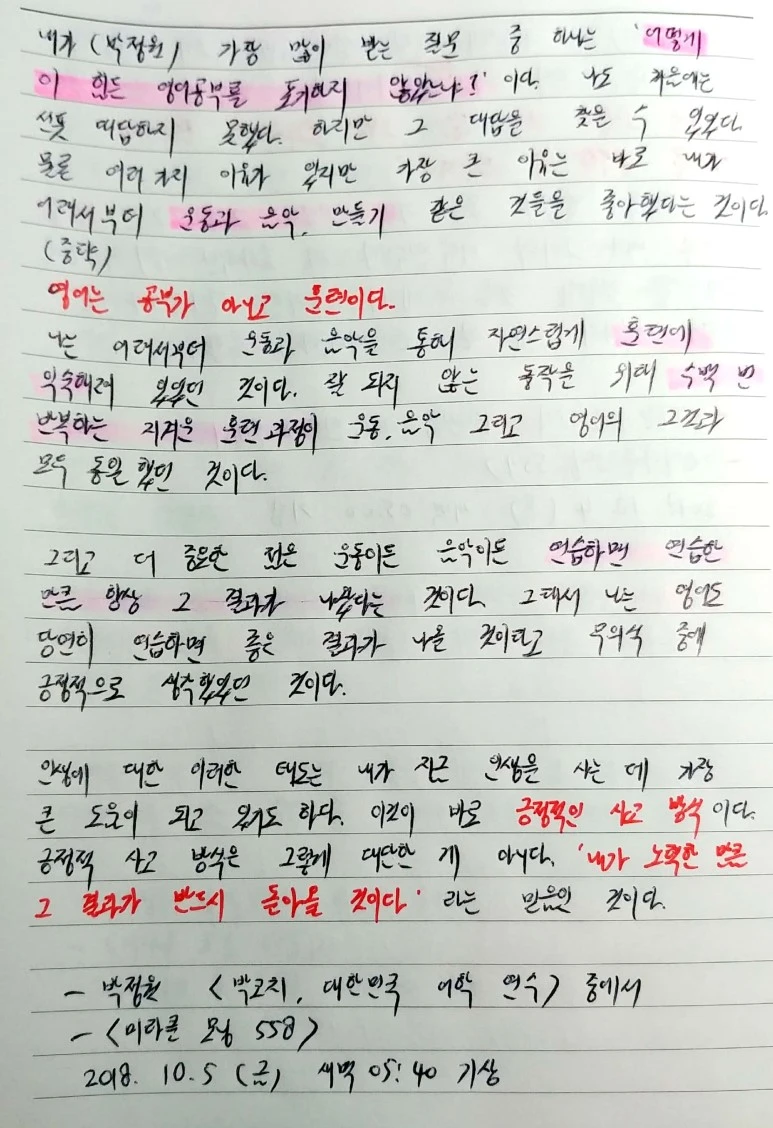 내가 (박정원) 가장 많이 받는 질문 중 하나는 '어떻게
이 힘든 영어공부를 포기하지 않았느냐?' 이다. 나도 처음에는
선뜻 대답하지 못했다. 하지만 그 대답을 찾을 수 있었다.
물론 여러 가지 이유가 있지만 가장 큰 이유는 바로 내가
어려서부터 운동과 음악, 만들기 같은 것들을 좋아했다는 것이다.
(중략)
영어는 공부가 아니고 훈련이다.
나는 어려서부터 운동과 음악을 통해 자연스럽게 훈련에
익숙해져 있었던 것이다. 잘 되지 않는 동작을 위해 수백 번
반복하는 지겨운 훈련 과정이 운동, 음악 그리고 영어의 그것과
모두 동일했던 것이다.
그리고 더 중요한 점은 운동이든 음악이든 연습하면 연습한
만큼 항상 그 결과가 나왔다는 것이다. 그래서 나는 영어도
당연히 연습하면 좋은 결과가 나올 것이라고 무의식 중에
긍정적으로 생각했었던 것이다.
인생에 대한 이러한 태도는 내가 지금 인생을 사는 데 가장
큰 도움이 되고 있기도 하다. 이것이 바로 긍정적인 사고 방식이다.
긍정적 사고 방식은 그렇게 대단한 게 아니다. '내가 노력한 만큼
그 결과가 반드시 돌아올 것이다' 라는 믿음인 것이다.
- 박정원 <박코치, 대한민국 어학 연수> 중에서
- <미라클 모닝 558>
2018. 10. 5 (금) 새벽 05:40 기상